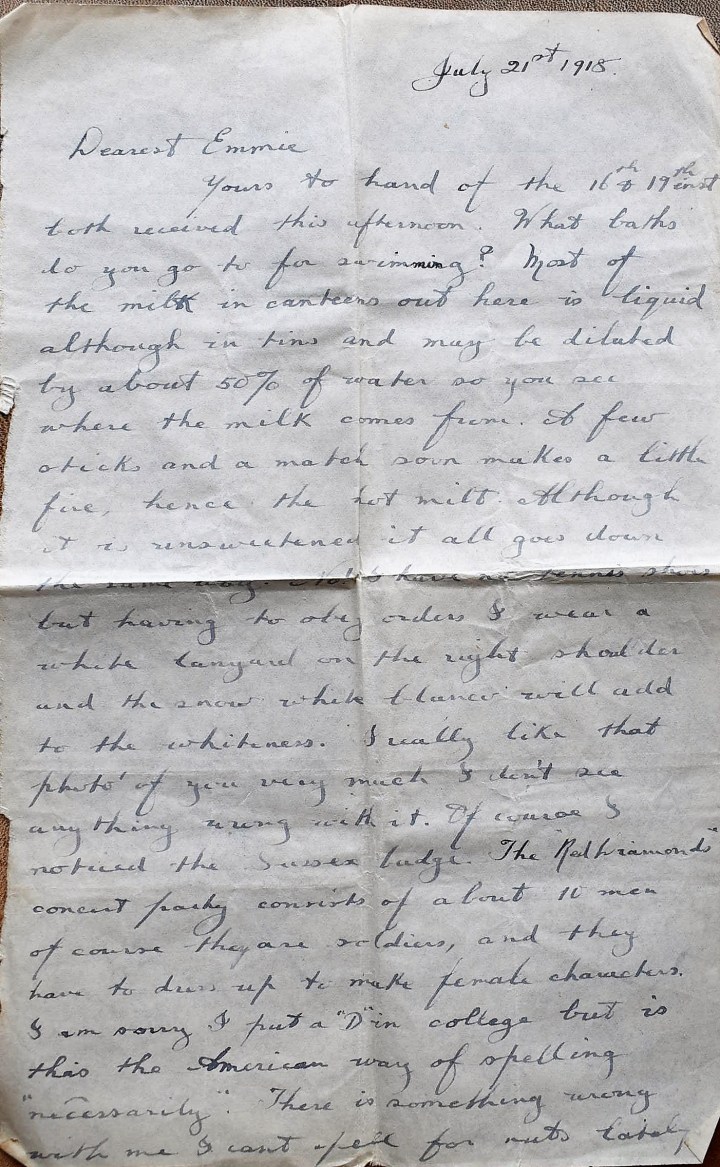 July 21st 1918.
Dearest Emmie
Yours to hand of the 16th & 19th inst
both received this afternoon. What baths
do you go to for swimming? Most of
the milk in canteens out here is liquid
although in tins and may be diluted
by about 50% of water so you see
where the milk comes from. A few
sticks and a match soon makes a little
fire, hence the hot milk. Although
it is unsweetened it all goes down
the same way. have no tennis shoes
but having to obey orders I wear a
white lanyard on the right shoulder
and the snow white blanco will add
to the whiteness. I really like that
photo' of you very much I don't see
anything wrong with it. Of course I
noticed the Sussex badge. The "Red Diamonds"
concert party consists of about 10 men
of course they are soldiers, and they
have to dress up to make female characters.
I am sorry I put a "D" in college but is
this the American way of spelling
"necessarily". There is something wrong
with me I cant spell for nuts lately